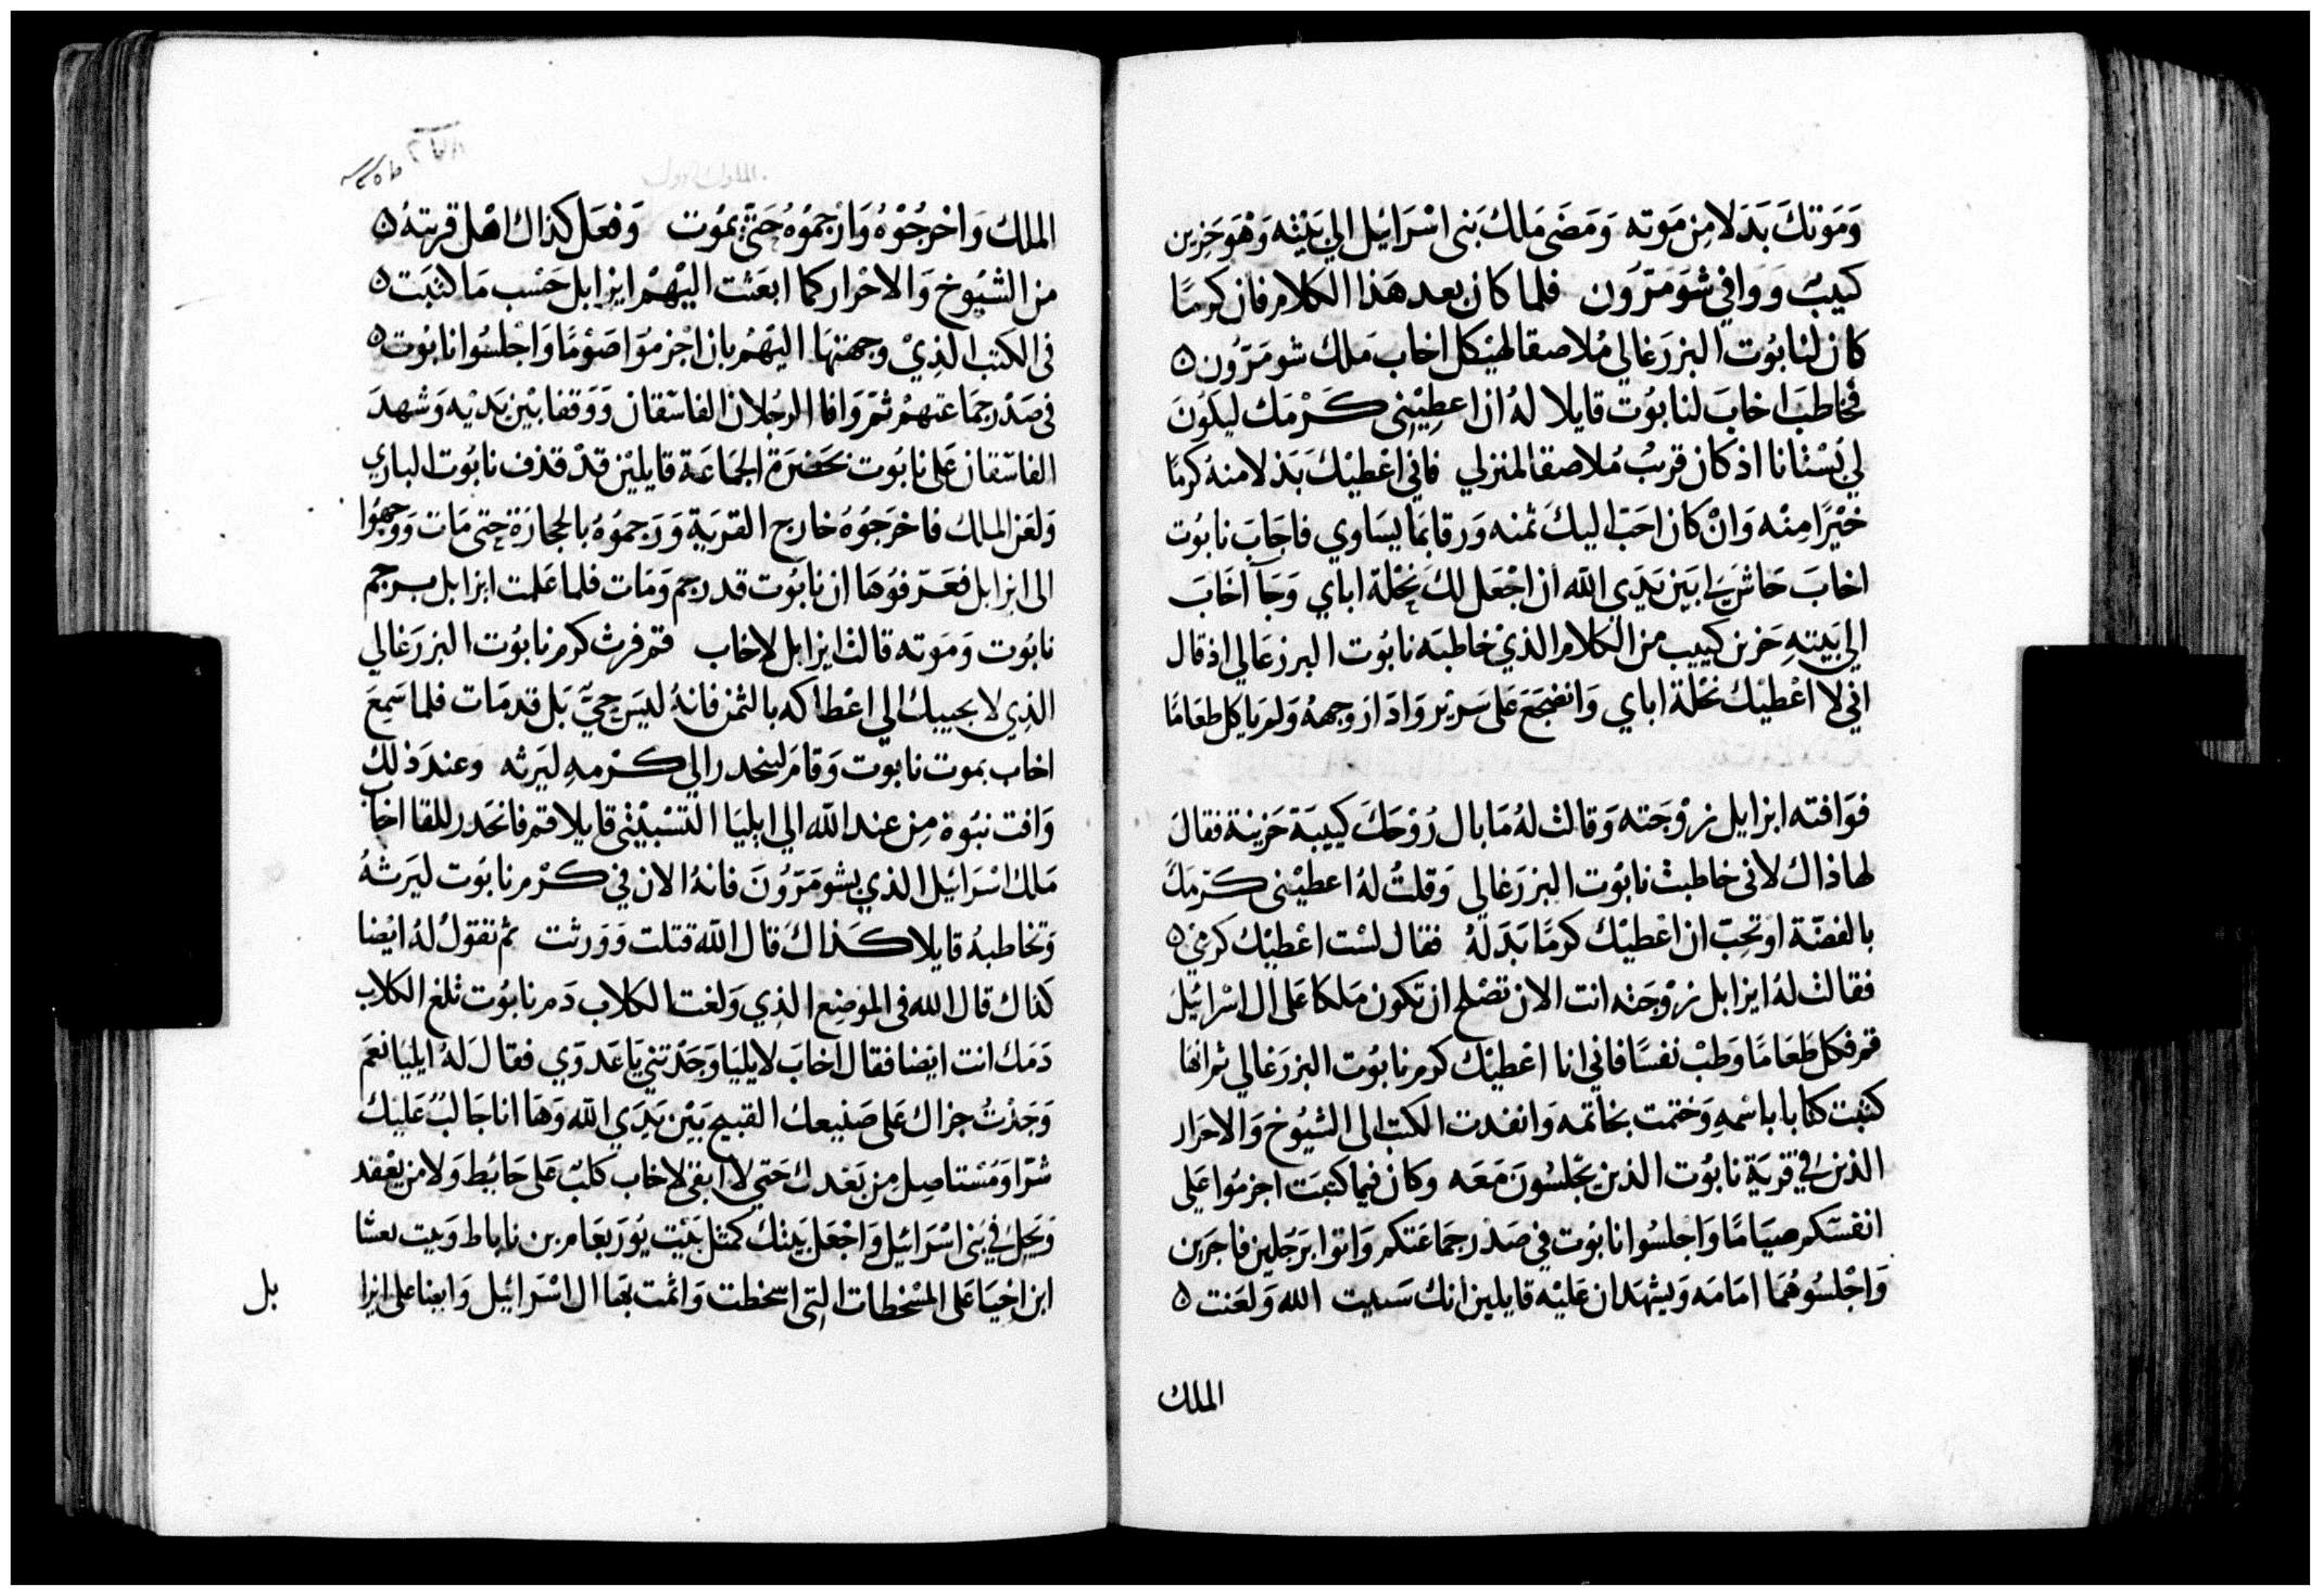 وَمَوتكَ بَدَلا مِن مَوته وَمَضَى مَلكُ بَنى اسْرَائيل الي بَيْته وَهْوَ حَزين
كييبٌ وَوَافي شوَمَرّون فلما كان بعد هَذا الكلام فان كرمًا
كان لنابوُت اليزرَغالي مُلاصقا لهيْكل اخاب مَلك شومَرّون
فخاطبَ اخابَ لنابوُت قايلا لهُ ان اعطِيْنى كَرْمَك ليكونَ
لي بُسْتانا اذ كان قريبٌ مُلاصقا لمنزلي فاني اعْطيْكَ بَدلا منهُ كرمًا
خيْرًا مِنْه وَانْ كان احَبّ اليكَ ثمنه وَرقا بمَا يسَاوي فاجَابَ نابوُت
اخابَ حَاشَى لي بَين يَدَى الله ان اجْعَل لكَ نِحْلة اباي وَجَآ اخَابَ
الي بَيته حَزين كييب من الكلام الذيْ خاطبَه نابوُت اليزرَغالي اذ قال
اني لا اعْطيْك نحْلة اباي وَانضجَعَ عَلى سَريْر وَادَار وجههُ وَلم ياكل طعَامًا
فوَافته ايزابل زوْجَته وَقالت لهُ مَا بال رُوْحَكَ كييبَة حَزينة فقالَ
لها ذاك لاني خاطبتُ نابوُت اليزرَغالي وَقلتُ لهُ اعطيْنى كَرْمَكَ
بالفضّة او تحِبّ ان اعْطيْك كرمًا بَدَلهُ فقال لسْت اعْطيْك كرمي
فقالت لهُ ايزابل زوْجَته انت الان تصْلح ان تكون مَلكا عَلى ال اسْرائيل
قم فكل طعَامًا وَطبْ نفسًا فاني انا اعْطيْك كرم نابوُت اليزرَغالي ثم انها
كتبت كتابا باسْمهِ وَختمت بخاتمه وَانفدت الكتب الى الشيُوخ وَالاحرَار
الذين في قريَة نابوُت الذين يجْلسُونَ مَعَه وَكان فيما كتبَت اجزمُوا عَلى
انفسَكم صيَامًا وَاجلسُوا نابوُت في صَدْر جمَاعَتكم وَاتوا برَجُلين فاجرَين
وَاجْلسُوهُمَا امَامَه وَيشهَدان عَليْه قايلين انك سَبيت الله وَلعَنت
الملك
الملكُ وَاخْرجُوْهُ وَارْجمُوُهُ حَتى يمُوت وَفعَل كذاك اهْل قريتهُ
من الشيُوخ وَالاحْرار كما ابعَثت اليْهمْ ايزابل حَسْب مَا كتبَت
في الكتب الذِيْ وجهتهَا اليْهم بان اجْزمُوا صَوْمًا وَاجْلسُوا نابوُت
في صَدْر جمَاعتهمْ ثمّ وَافا الرجُلان الفاسّقان وَوَقفا بيْن يَديْه وَشهدَ
الفاسّقان عَلى نابوُت بحَضرَة الجمَاعَة قايليْن قدْ قذف نابُوت الباري
وَلعَن الملكُ فاخرَجوُهُ خارج القريَة وَرَجموُهُ بالحجارَة حتى مَات وَوجهوُا
الى ايزابل فعَرّفوُهَا ان نابوُت قد رجم وَمَات فلما عَلمت ايزابل برجم
نابوُت وَمَوته قالت ايزابل لاخاب قم فرث كرم نابوُت اليزرَغالي
الذِي لا يجيبك الي اعْطاكه بالثمن فانهُ ليسَ حِيّ بَل قد مَات فلما سَمِعَ
اخاب بموت نابوت وَقامَ لينحدر الي كَرْمهِ ليَرثه وَعند ذلك
وَافت نبُوة مِن عند الله الي ايليَا التسْبيْتى قايلا قم فانحَدر للقا اخاب
مَلك اسْرَائيل الذي بشومَرّوُنَ فانهُ الان في كَرْم نابوُت ليَرثهُ
وَتخاطبهُ قايلا كَذاكَ قال الله قتلت وَوَرثت ثم تقولُ لهُ ايْضا
كذاك قال الله في المَوضِع الذِي وَلغت الكلاب دَم نابوُت تلغ الكلاب
دَمَك انت ايْضا فقال اخابَ لايليَا وَجَدْتني يَا عَدوّي فقال لَهُ ايليَا نعَم
وَجَدْتُ جزاك عَلى صَنيعك القبيح بَيْن يَدَي الله وَهَا انا جَالبٌ عَليْك
شرّا وَمُسْتاصِل مِن بَعْدك حَتي لا ابقى لاخاب كلبٌ عَلى حَائط وَلا من يعْقد
وَيحل في بَني اسْرَائيل وَاجْعَل بَيتك كمثل بَيْت يُورَبعَام بن ناباط وَبيت بعشا
ابن اخيَا عَلى المسْخطات التى اسْخطت وَاثمت بهَا ال اسْرَائيل وَايضا على ايزا
بل